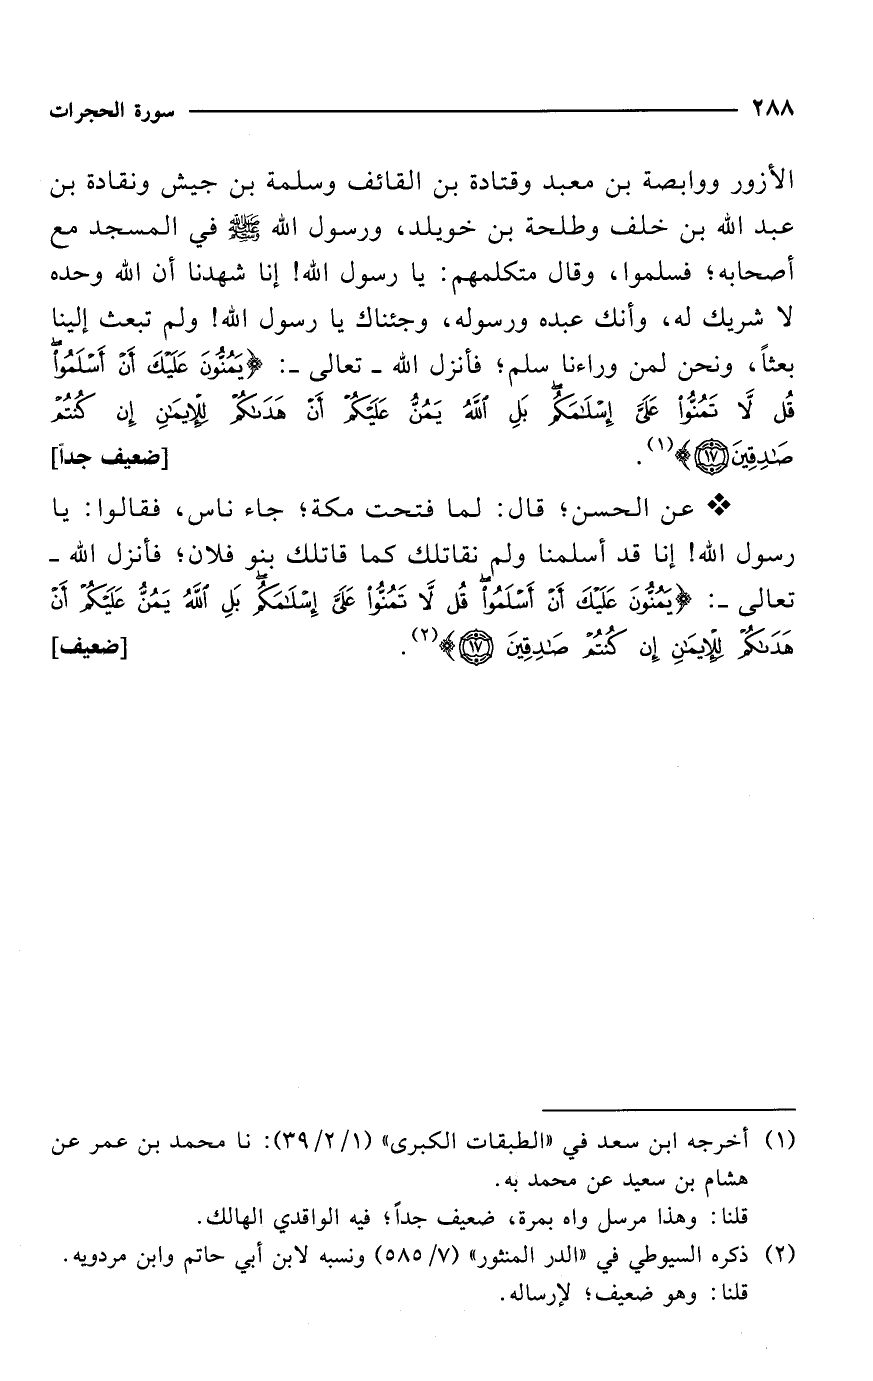 ٢٨٨ سورة الحجرات
الأزور ووابصة بن معبد وقتادة بن القائف وسلمة بن جيش ونقادة بن
عبد الله بن خلف وطلحة بن خويلد، ورسول الله ﷺ في المسجد مع
أصحابه؛ فسلموا، وقال متكلمهم: يا رسول الله! إنا شهدنا أن الله وحده
لا شريك له، وأنك عبده ورسوله، وجئناك يا رسول الله! ولم تبعث إلينا
بعثاً، ونحن لمن وراءنا سلم؛ فأنزل الله ـ تعالى ـ: ﴿يَمُنُّونَ عَلَيْكَ أَنْ أَسْلَمُواْۖ
قُل لَّا تَمُنُّواْ عَلَىَّ إِسْلَٰمَكُمۖ بَلِ ٱللَّهُ يَمُنُّ عَلَيْكُمْ أَنْ هَدَىٰكُمْ لِلْإِيمَٰنِ إِن كُنتُمْ
صَٰدِقِينَ ۝١٧﴾(١). [ضعيف جداً]
❖ عن الحسن؛ قال: لما فتحت مكة؛ جاء ناس، فقالوا: يا
رسول الله! إنا قد أسلمنا ولم نقاتلك كما قاتلك بنو فلان؛ فأنزل الله ـ
تعالى ـ: ﴿يَمُنُّونَ عَلَيْكَ أَنْ أَسْلَمُواْۖ قُل لَّا تَمُنُّواْ عَلَىَّ إِسْلَٰمَكُمۖ بَلِ ٱللَّهُ يَمُنُّ عَلَيْكُمْ أَنْ
هَدَىٰكُمْ لِلْإِيمَٰنِ إِن كُنتُمْ صَٰدِقِينَ ۝١٧﴾(٢). [ضعيف]
(١) أخرجه ابن سعد في «الطبقات الكبرى» (١/ ٢/ ٣٩): نا محمد بن عمر عن
هشام بن سعيد عن محمد به.
قلنا: وهذا مرسل واه بمرة، ضعيف جداً؛ فيه الواقدي الهالك.
(٢) ذكره السيوطي في «الدر المنثور» (٧/ ٥٨٥) ونسبه لابن أبي حاتم وابن مردويه.
قلنا: وهو ضعيف؛ لإرساله.